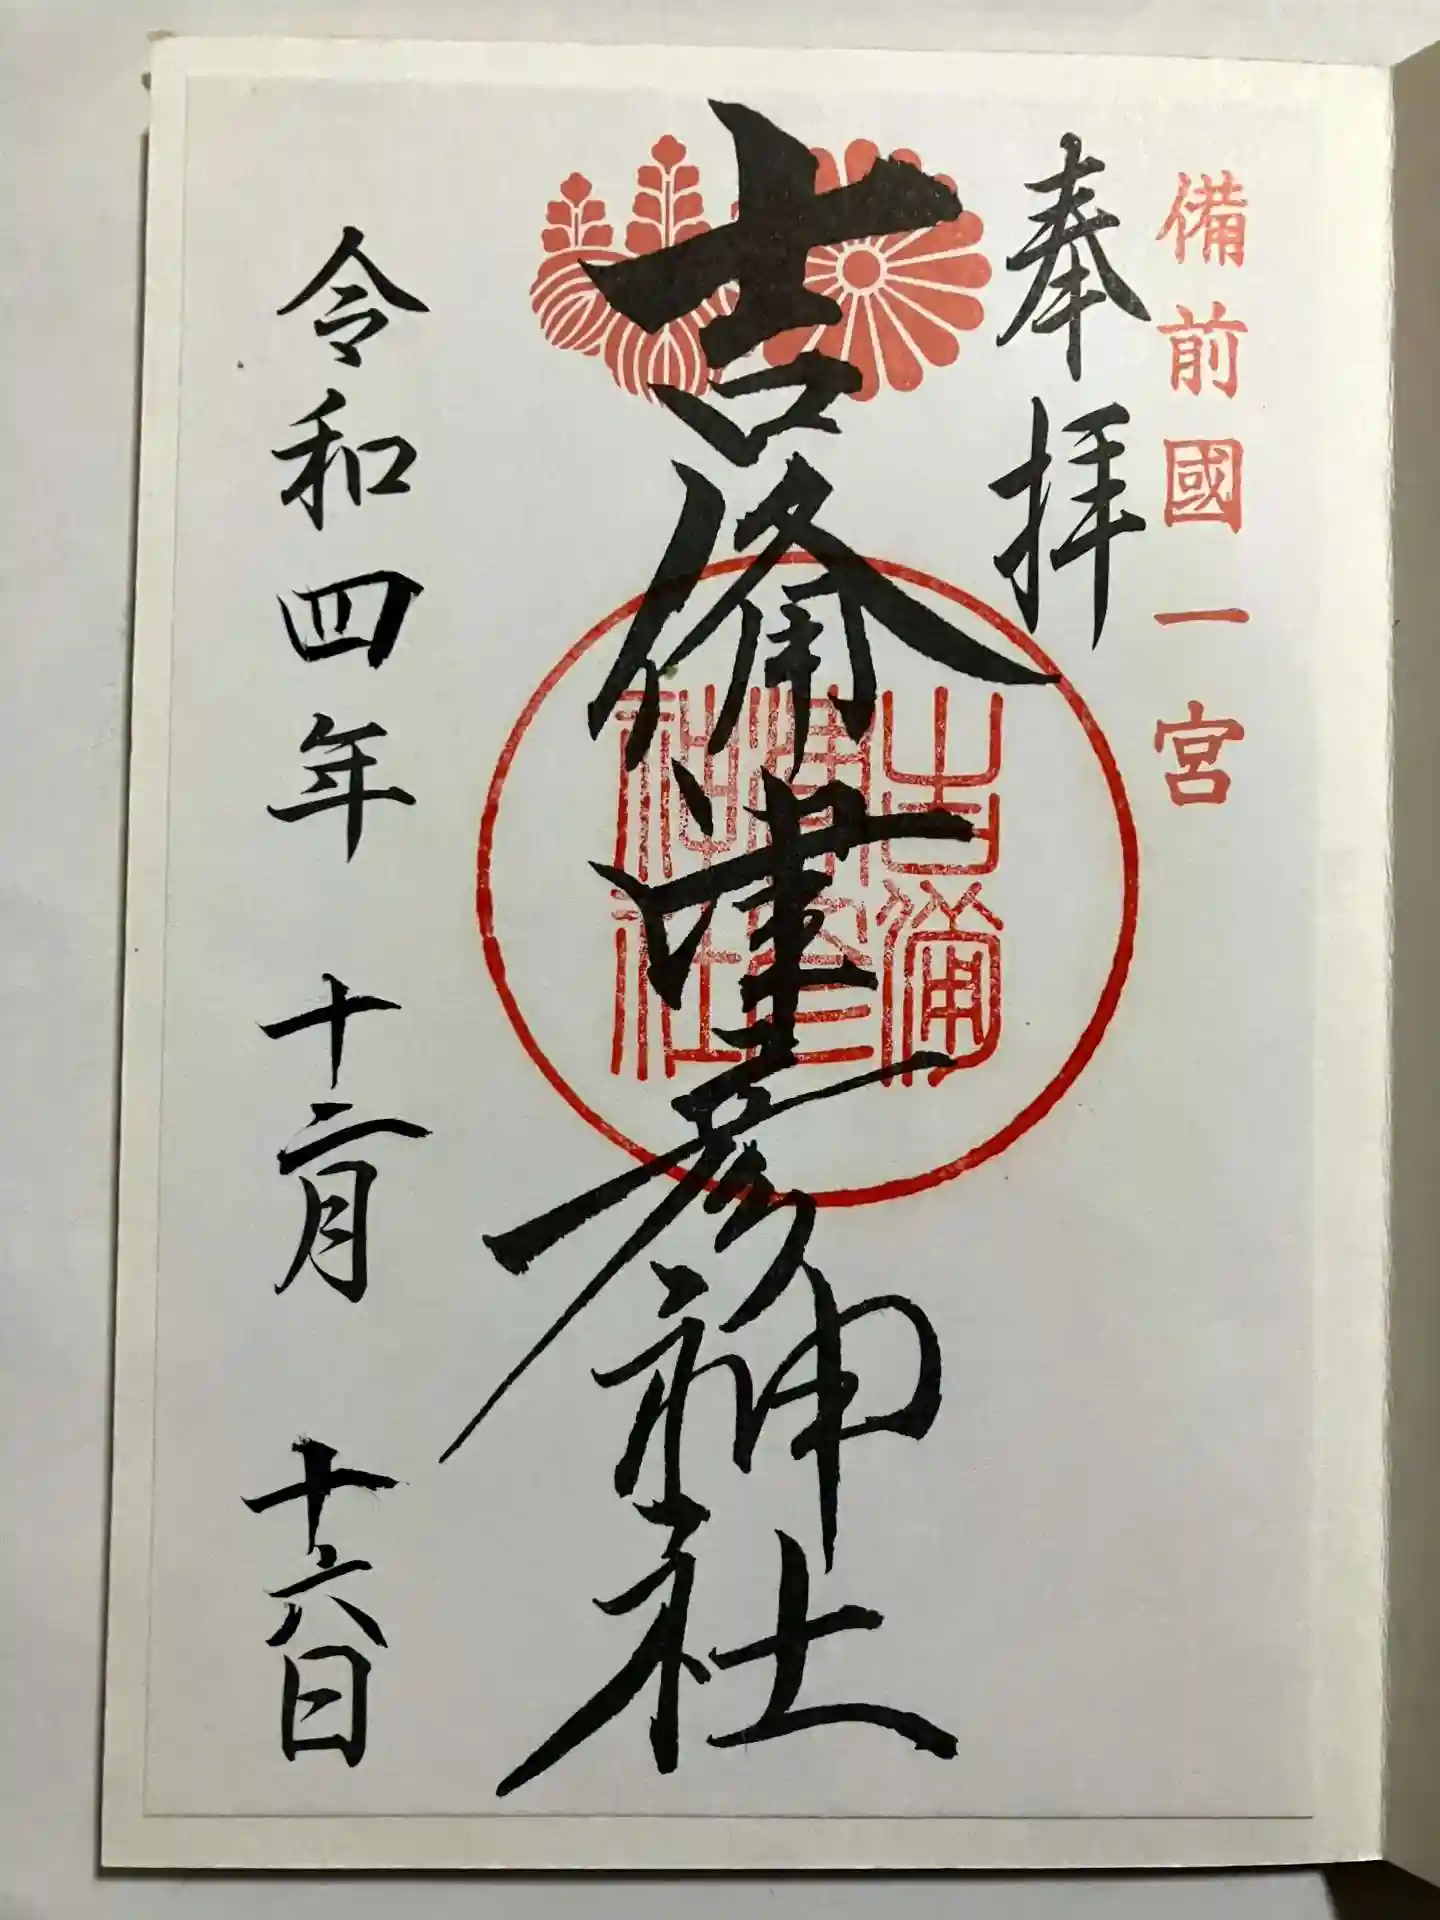 備前國一宮
奉拝
吉備津彦神社
吉備
津彦
神社
令和四年 十二月 十六日